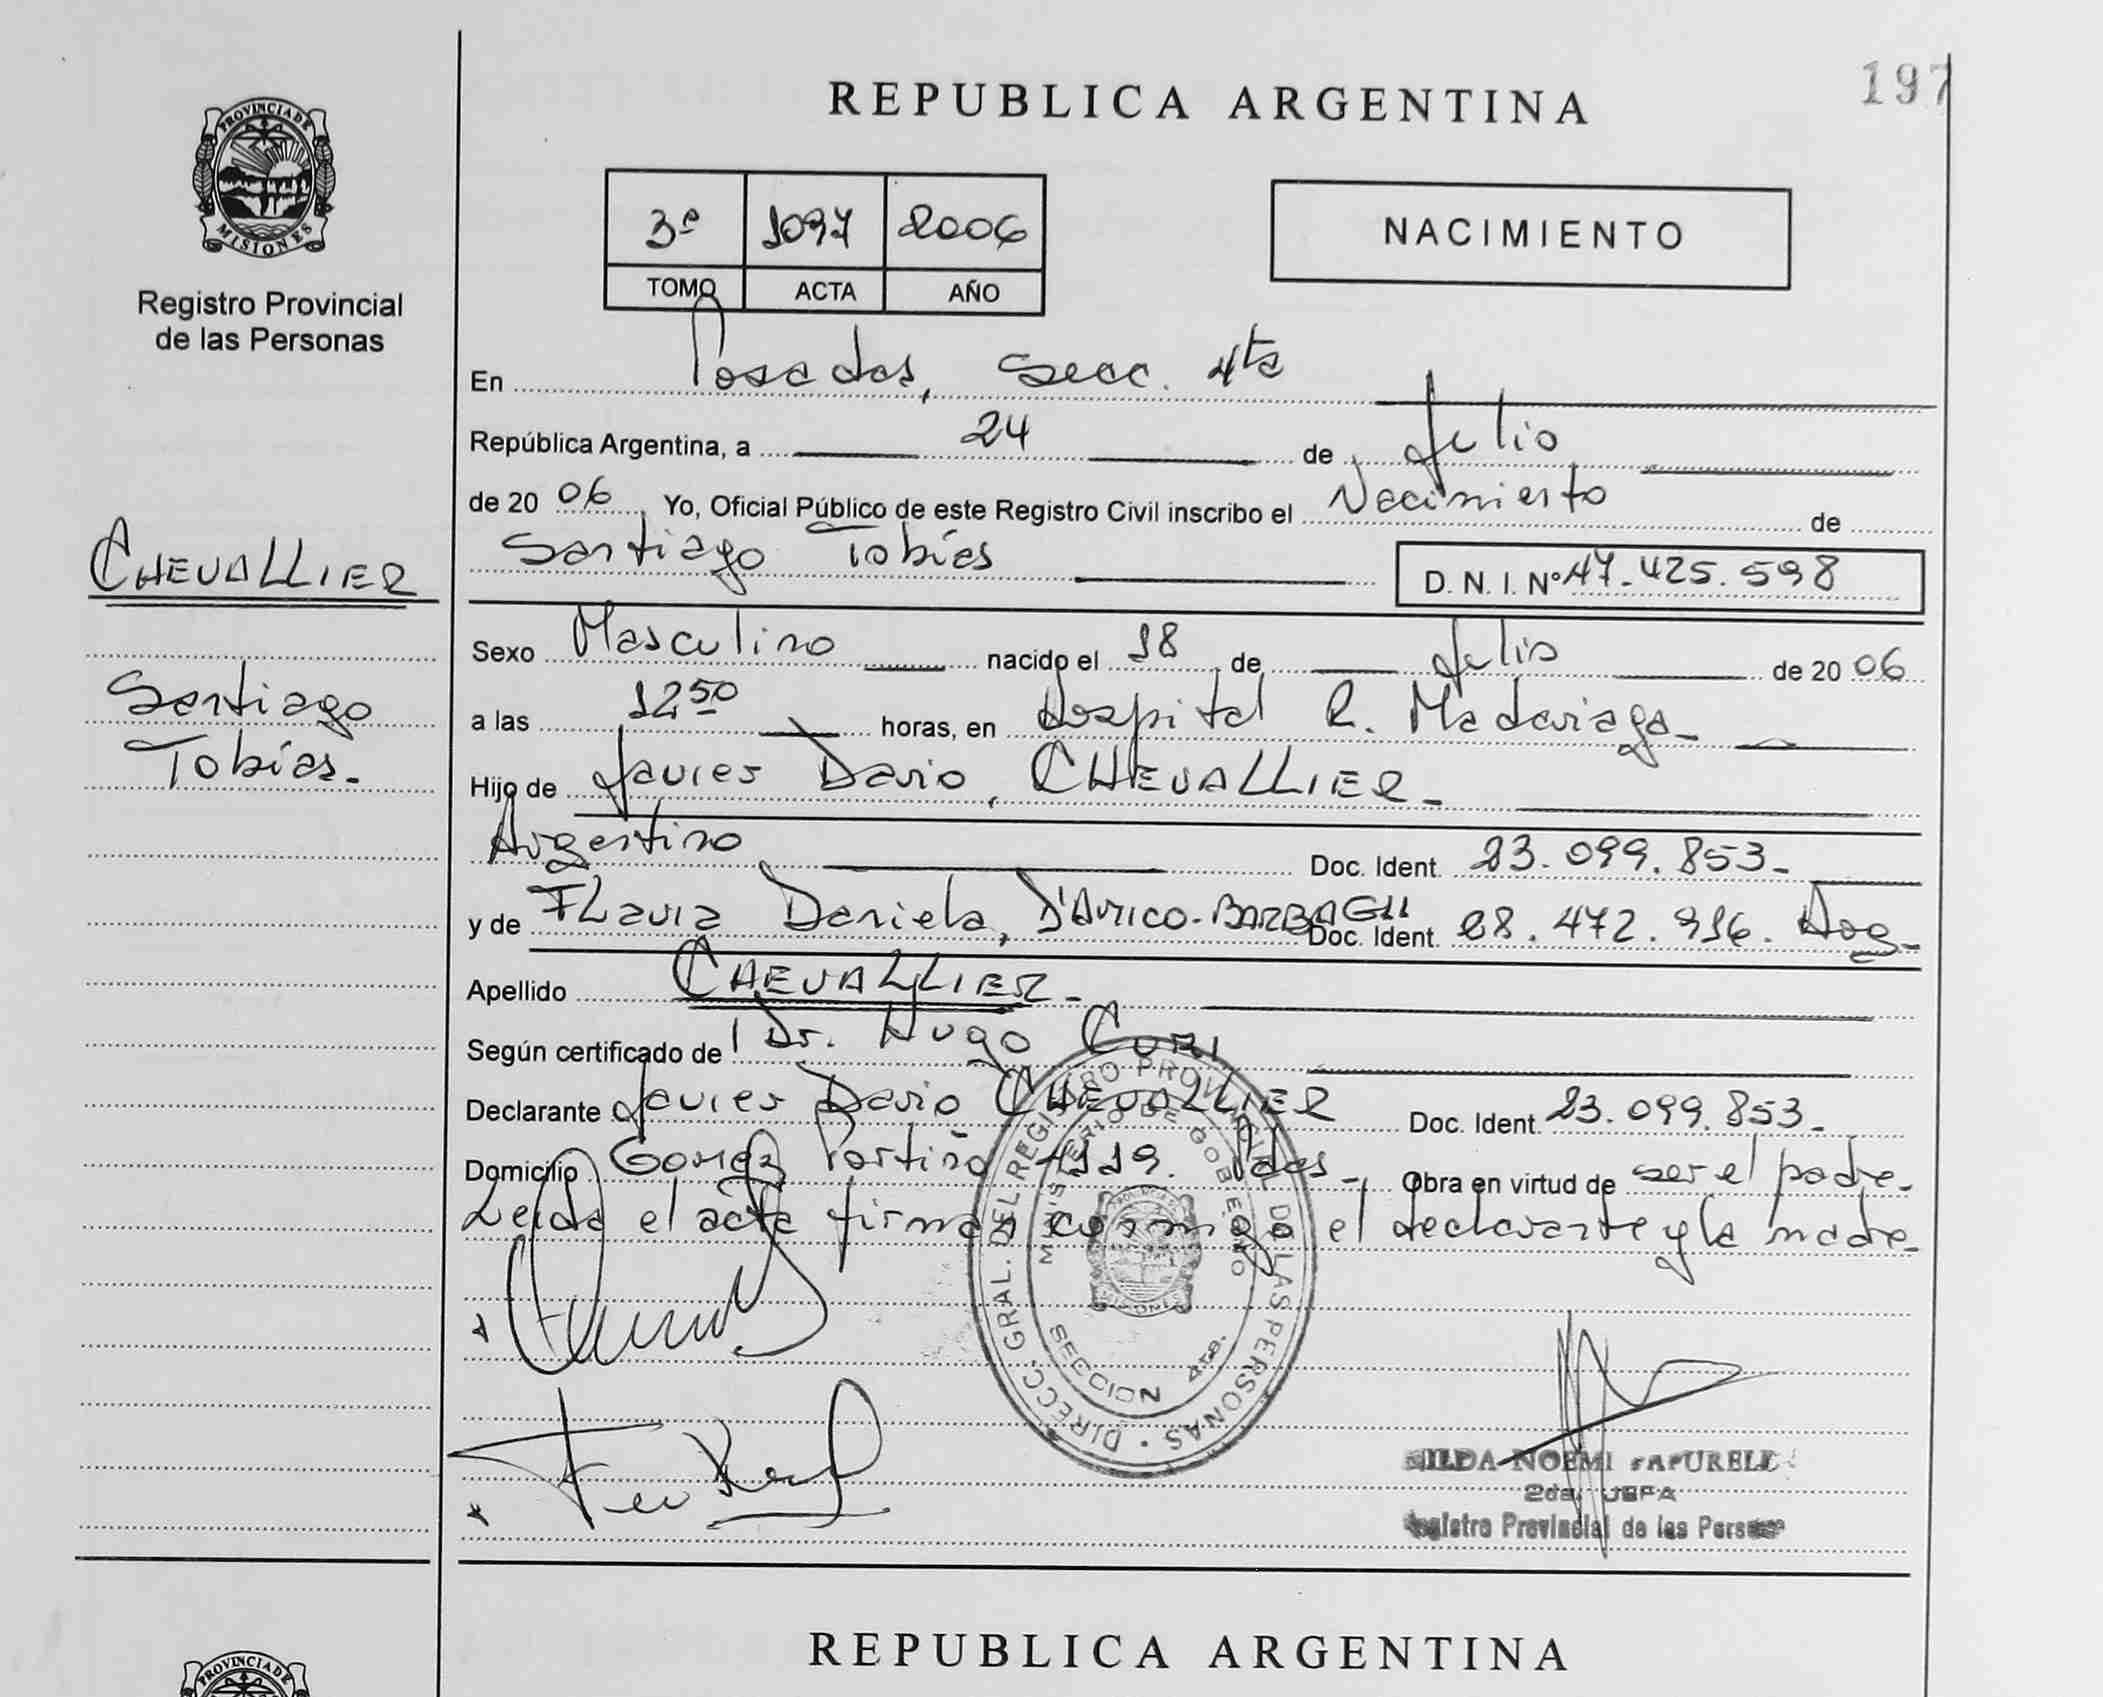 REPUBLICA ARGENTINA
197
PROVINCIA DE
MISIONES
Registro Provincial
de las Personas
3º 1097 2006
TOMO ACTA AÑO
NACIMIENTO
En Posadas, Secc. 4ta
República Argentina, a 24 de Julio
de 20 06 Yo, Oficial Público de este Registro Civil inscribo el Nacimiento de
Santiago Tobías D. N. I. Nº 47.425.598
CHEVALLIER
Santiago
Tobías.
Sexo Masculino nacido el 18 de Julio de 20 06
a las 12 50 horas, en Hospital R. Madariaga-
Hijo de Javier Dario, CHEVALLIER-
Argentino Doc. Ident. 23.099.853-
y de Flavia Daniela, D'AMICO-BARBAGLI Doc. Ident. 28.472.916. Arg-
Apellido CHEVALLIER-
Según certificado de Dr. Hugo CURI
Declarante Javier Dario CHEVALLIER Doc. Ident. 23.099.853-
Domicilio Gomez Portiño 4119. Pdas- Obra en virtud de ser el padre-
Leida el acta firman conmigo el declarante y la madre-
DIRECC. GRAL. DEL REGISTRO PROVINCIAL DE LAS PERSONAS
MINISTERIO DE GOBIERNO
PROVINCIA DE
MISIONES
SECCION 4ta.
NOEMI
2da. JEFA
Registro Provincial de las Personas
REPUBLICA ARGENTINA
PROVINCIA DE